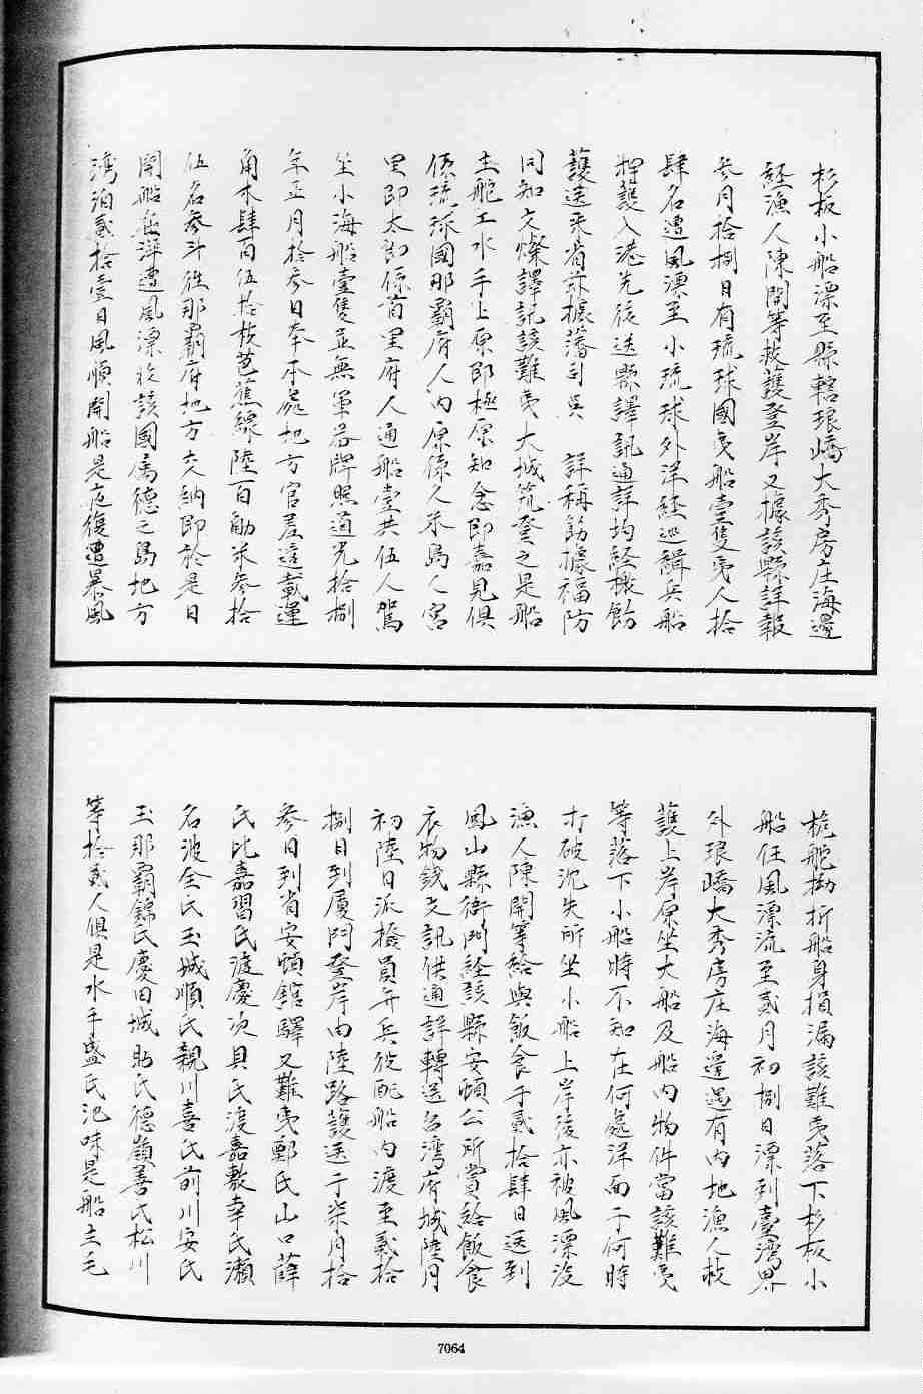 杉板小船漂至縣轄琅嶠大秀房庄海邊
經漁人陳開等救護登岸又據該縣詳報
參月拾捌日有琉球國夷船壹隻夷人拾
肆名遭風漂至小琉球外洋經巡緝兵船
將護入港先後送縣譯訊通詳均經檄飭
護送來省茲據藩司吳 詳稱飭據福防
同知文燦譯訊該難夷大城筑登之是船
主舵工水手上原即極原知念即嘉見俱
係琉球國那霸府人內原係久米島人宮
里即太郎係首里府人通船壹共伍人駕
坐小海船壹隻並無軍器牌照道光拾捌
年正月拾參日奉本處地方官差這載運
角木肆百伍拾枝芭蕉線陸百觔米參拾
伍名參斗往那霸府地方交納即於是日
開船在洋遭風漂收該國屬德之島地方
灣泊貳拾壹日風順開船是夜復遭暴風
桅舵拗折船身損漏該難夷落下杉板小
船任風漂流至貳月初捌日漂到臺灣界
外琅嶠大秀房庄海邊遇有內地漁人救
護上岸原坐大船及船內物件當該難夷
等落下小船時不知在何處洋面于何時
打破沉失所坐小船上岸後亦被風漂沒
漁人陳開等給與飯食于貳拾肆日送到
鳳山縣衙門詮該縣安頓公所賞給飯食
衣物錢文訊供通詳轉送台灣府城陸月
初陸日派撥員弁兵役配船內渡至貳拾
捌日到廈門登岸由陸路護送于柒月拾
參日到省安頓館驛又難夷鄭氏山口薛
氏比嘉習氏渡慶次具氏渡嘉敷幸氏瀨
名波全氏玉城順氏親川喜氏前川安氏
玉那霸錦氏慶田城貼氏德嶺善氏松川
等拾貳人俱是水手盛氏池味是船主毛
7064